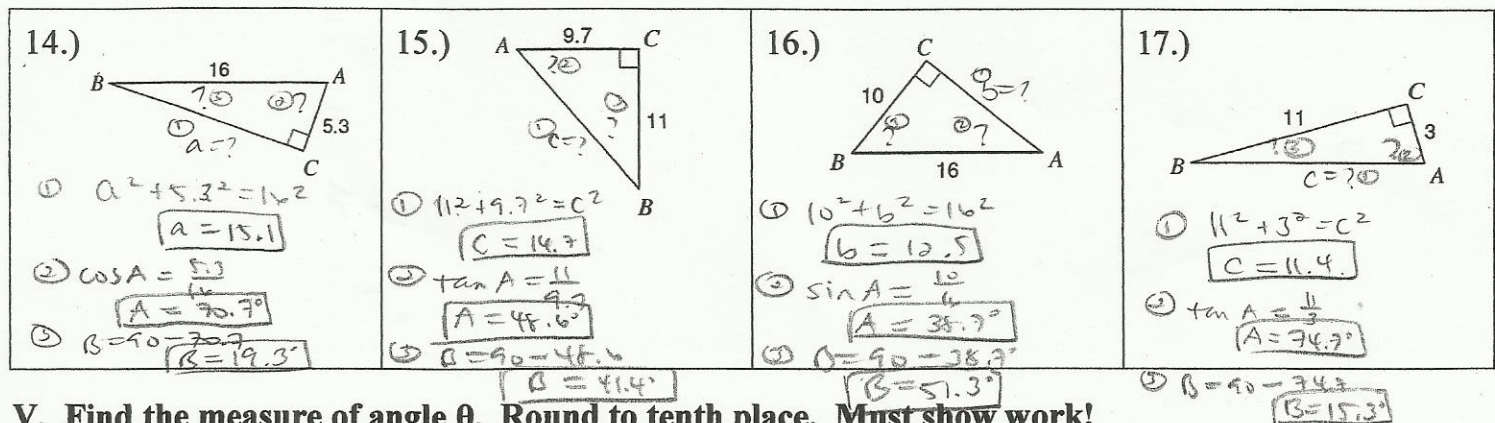 14.)
B 16 A
? ③ ② ?
① a = ?
5.3
C
① a² + 5.3² = 16²
a = 15.1
② cos A = 5.3/16
A = 70.7°
③ B = 90 - 70.7
B = 19.3°
15.)
A 9.7 C
? ②
③ ?
① c = ?
11
B
① 11² + 9.7² = c²
C = 14.7
② tan A = 11/9.7
A = 48.6°
③ B = 90 - 48.6
B = 41.4°
16.)
C
① b = ?
10
③ ? ② ?
B 16 A
① 10² + b² = 16²
b = 12.5
② sin A = 10/16
A = 38.7°
③ B = 90 - 38.7°
B = 51.3°
17.)
C
11
3
? ③ ? ②
B A
C = ? ①
① 11² + 3² = c²
C = 11.4
② tan A = 11/3
A = 74.7°
③ B = 90 - 74.7
B = 15.3°
V. Find the measure of angle θ. Round to tenth place. Must show work!